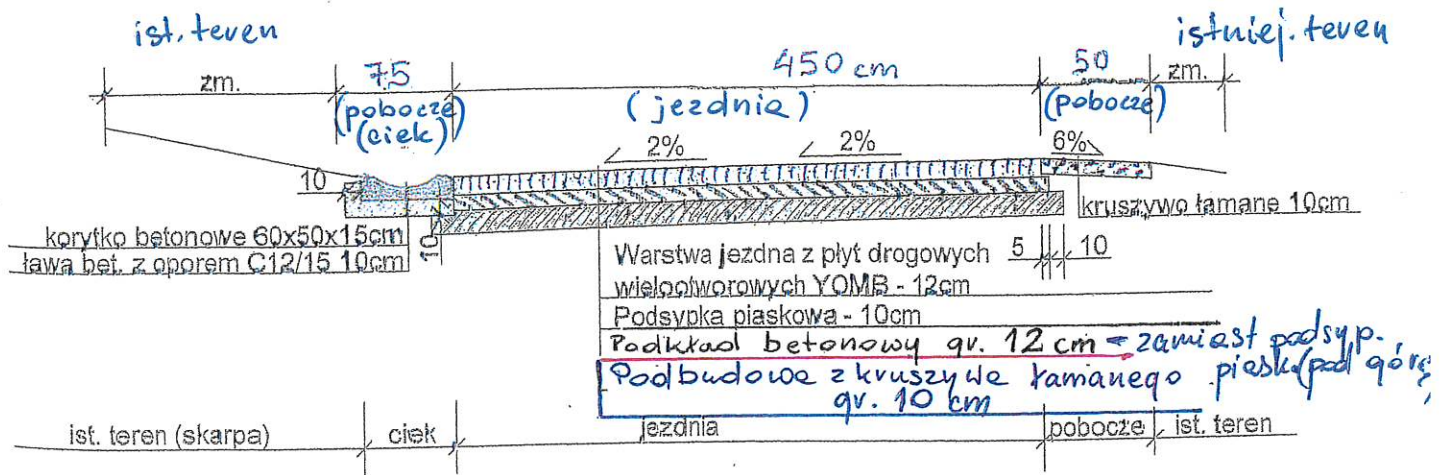 ist. teren
istniej. teren
zm.
75
450 cm
50
zm.
(pobocze)
(ciek)
(jezdnia)
(pobocze)
2%
2%
6%
10
kruszywo łamane 10cm
korytko betonowe 60x50x15cm
ława bet. z oporem C12/15 10cm
10
Warstwa jezdna z płyt drogowych
5
10
wielootworowych YOMB - 12cm
Podsypka piaskowa - 10cm
Podkład betonowy gr. 12 cm - zamiast podsyp.
piask (pod górę)
Podbudowa z kruszywa łamanego
gr. 10 cm
ist. teren (skarpa)
ciek
jezdnia
pobocze
ist. teren